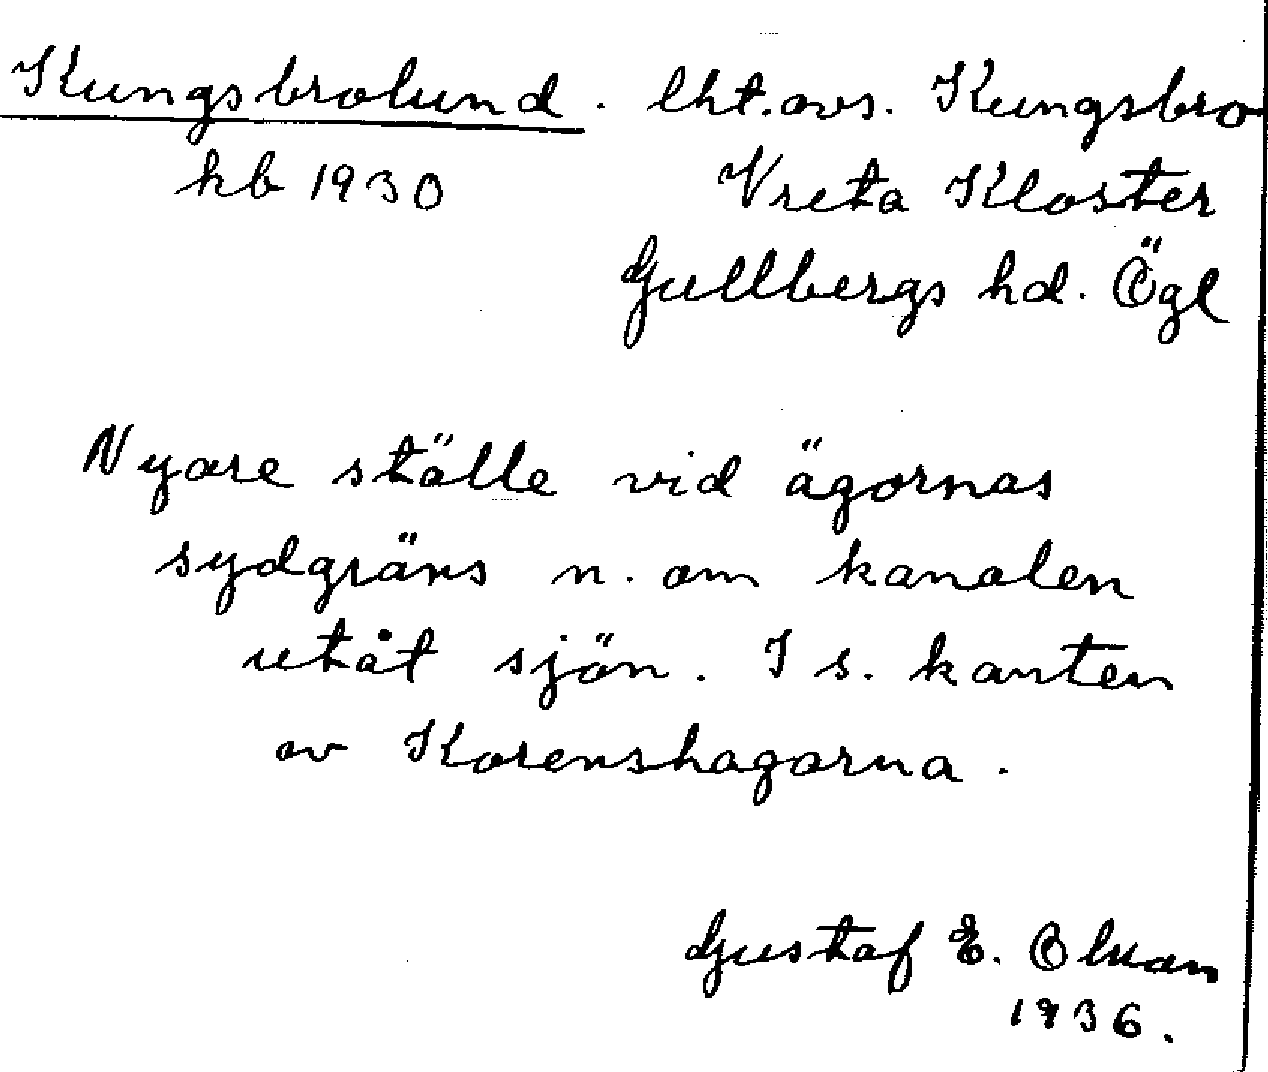 Kungsbrolund. lht. avs. Kungsbro
hb 1930 Vreta Kloster
Gullbergs hd. Ögl
Nyare ställe vid ägornas
sydgräns n. om kanalen
utåt sjön. I s. kanten
av Korenshagarna.
Gustaf E.
1936.